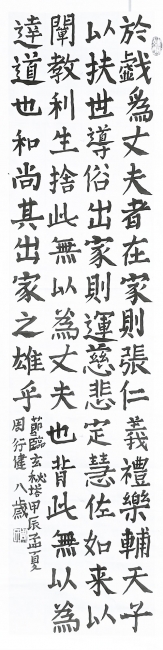 於戲為丈夫者在家則張仁義禮樂輔天子
以扶世導俗出家則運慈悲定慧佐如来以
闡教利生捨此無以為丈夫也背此無以為
達道也和尚其出家之雄乎
節臨玄秘塔甲辰孟夏
周行健八歲